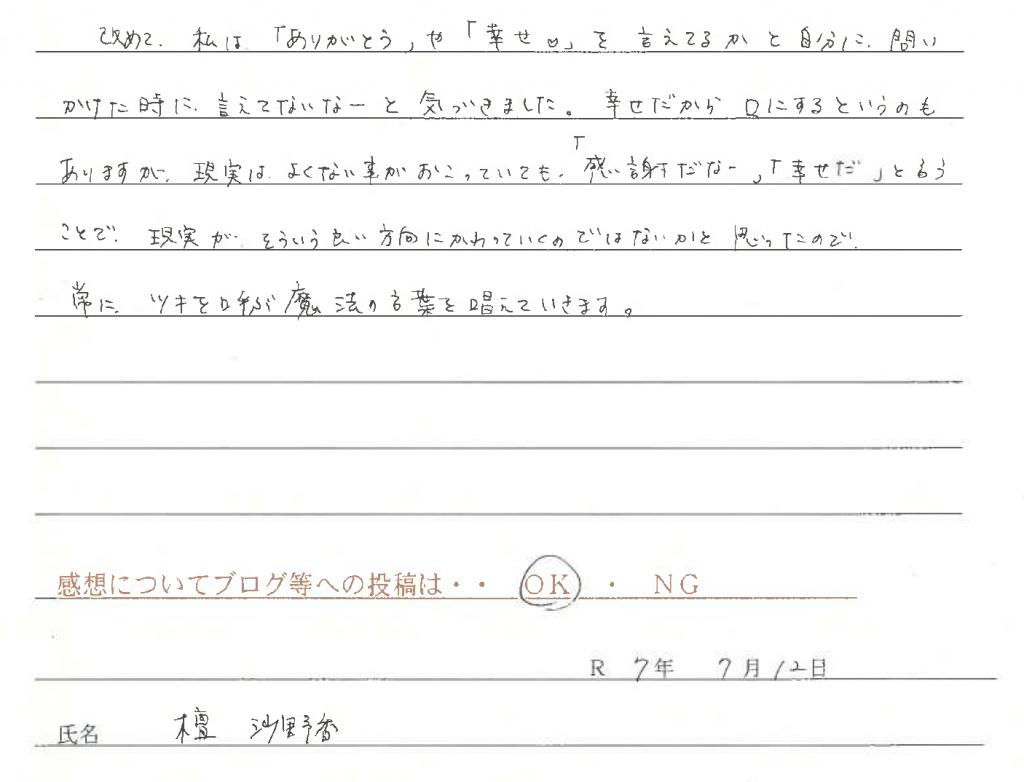 改めて、私は「ありがとう」や「幸せ♡」を言えてるかと自分に、問い
かけた時に、言えてないなーと気づきました。幸せだから口にするというのも
ありますが、現実は、よくない事がおこっていても、「感謝だなー」、「幸せだ」と言う
ことで、現実が、そういう良い方向にかわっていくのではないかと思ったので、
常に、ツキを呼ぶ魔法の言葉を唱えていきます。
感想についてブログ等への投稿は・・ OK ・ NG
R 7年 7月12日
氏名 檀 沙野香